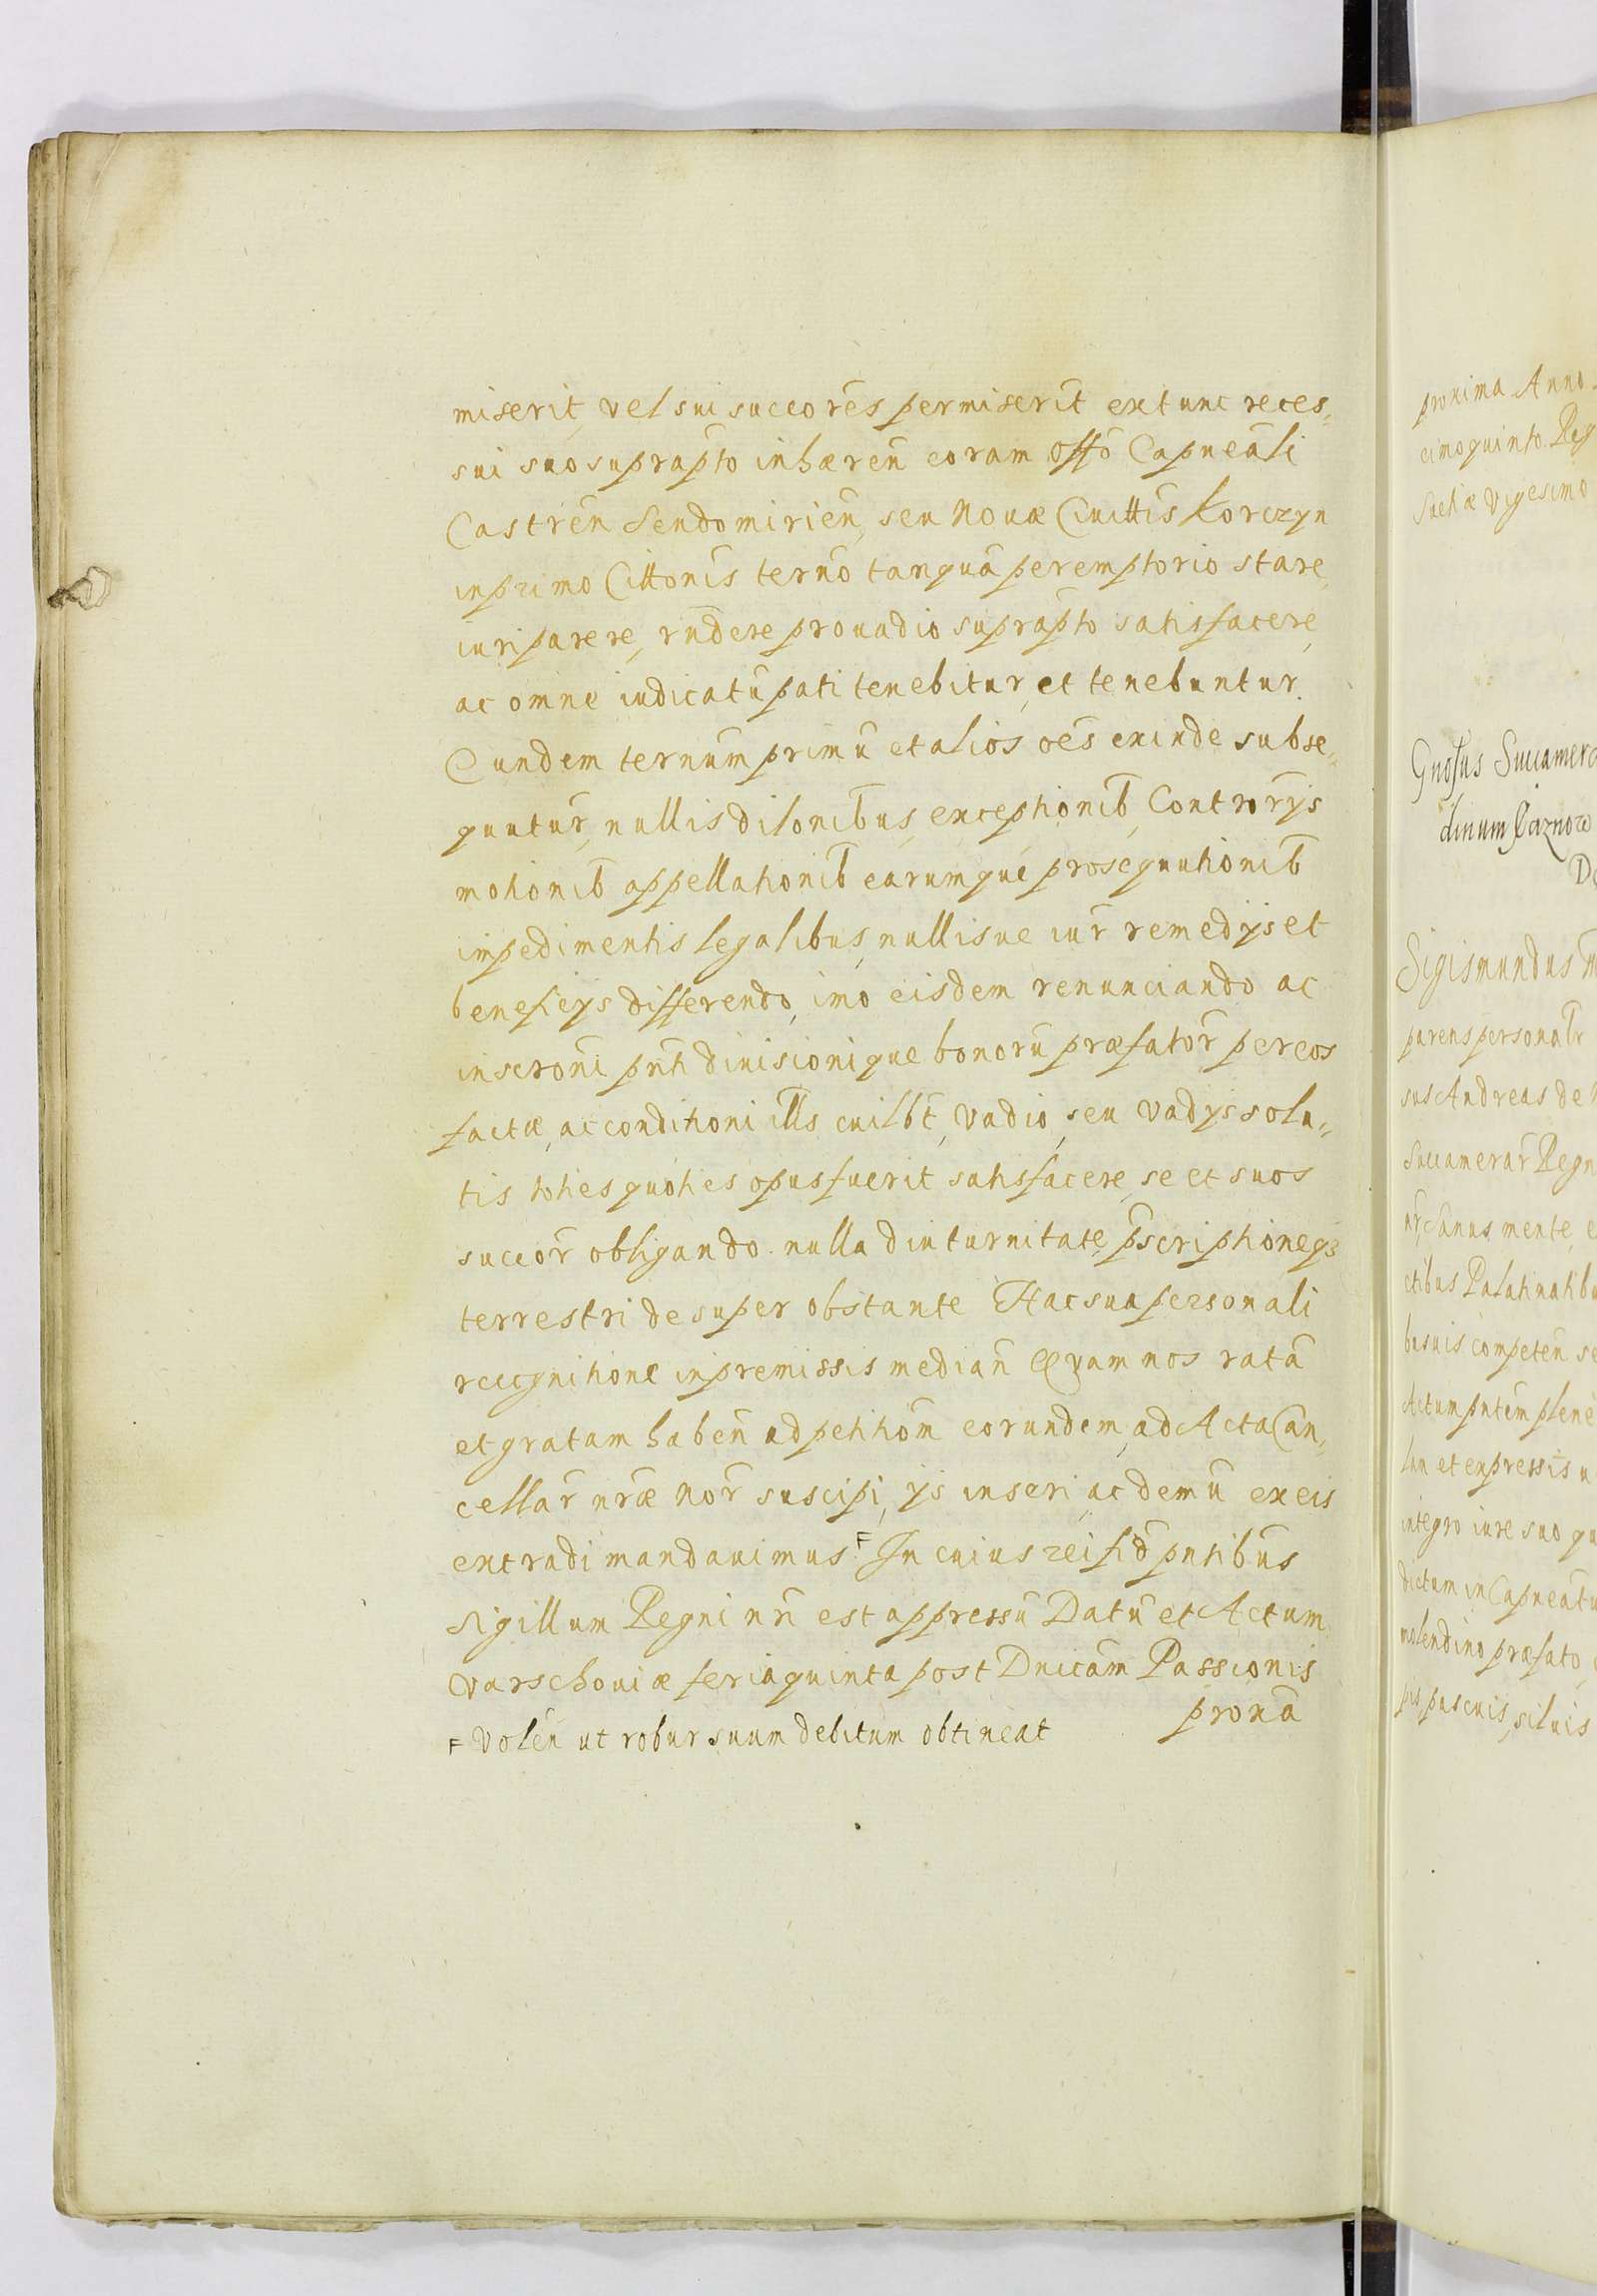 miserit, vel sui succores permiserit extunc reces„
sui suo suprapto inhæren coram offo Capneali
Castren Sendomirien, seu Nouæ Ciuittis Korczyn
in primo Cittonis terno tanquā peremptorio stare,
iuri parere, rndere pro uadio suprapto satisfacere,
ac omne iudicatū pati tenebitur, et tenebuntur.
Eundem ternum primū et alios oēs exinde subse„
quutur, nullis dilonibus, exceptionib, Controrys
motionib appellationib earumque prosequutionib
impedimentis legalibus, nullisue iur remedys et
beneficys differendo, imo eisdem renunciando ac
inscroni pnti diuisionique bonorū præfator per eos
factæ, ac conditioni illis cuilbt, vadio, seu vadys solu„
tis toties quoties opus fuerit satisfacere, se et suos
succor obligando. nulla diuturnitate, pscriptioneqз
terrestri desuper obstante Hac sua personali
recognitione in premissis median Quam nos ratā
et gratam haben ad petitiōn eorundem, ad Acta Can„
cellar nræ Nor suscipi, ys inseri ac demū ex eis
extradi mandauimus. F In cuius rei fid pntibus
Sigillum Regni nri est appressū Datū et Actum
Varschouiæ feria quinta post Dnicam Passionis
proxā
F Volen ut robur suum debitum obtineat
proxima Anno
cimoquinto. Reg
Sueciæ Vigesimo
Gnosus Succamera
dinum
Sigismundus
parens personalr
sus Andreas de
Succamerar Regn
nr, sanus mente, e
ctibus Palatinatibu
bus uis competen se
Actum pntem plene
lan et expressis u
integro iure suo qu
dictum in Capneatu
molendino præfato,
pis pascuis, siluis